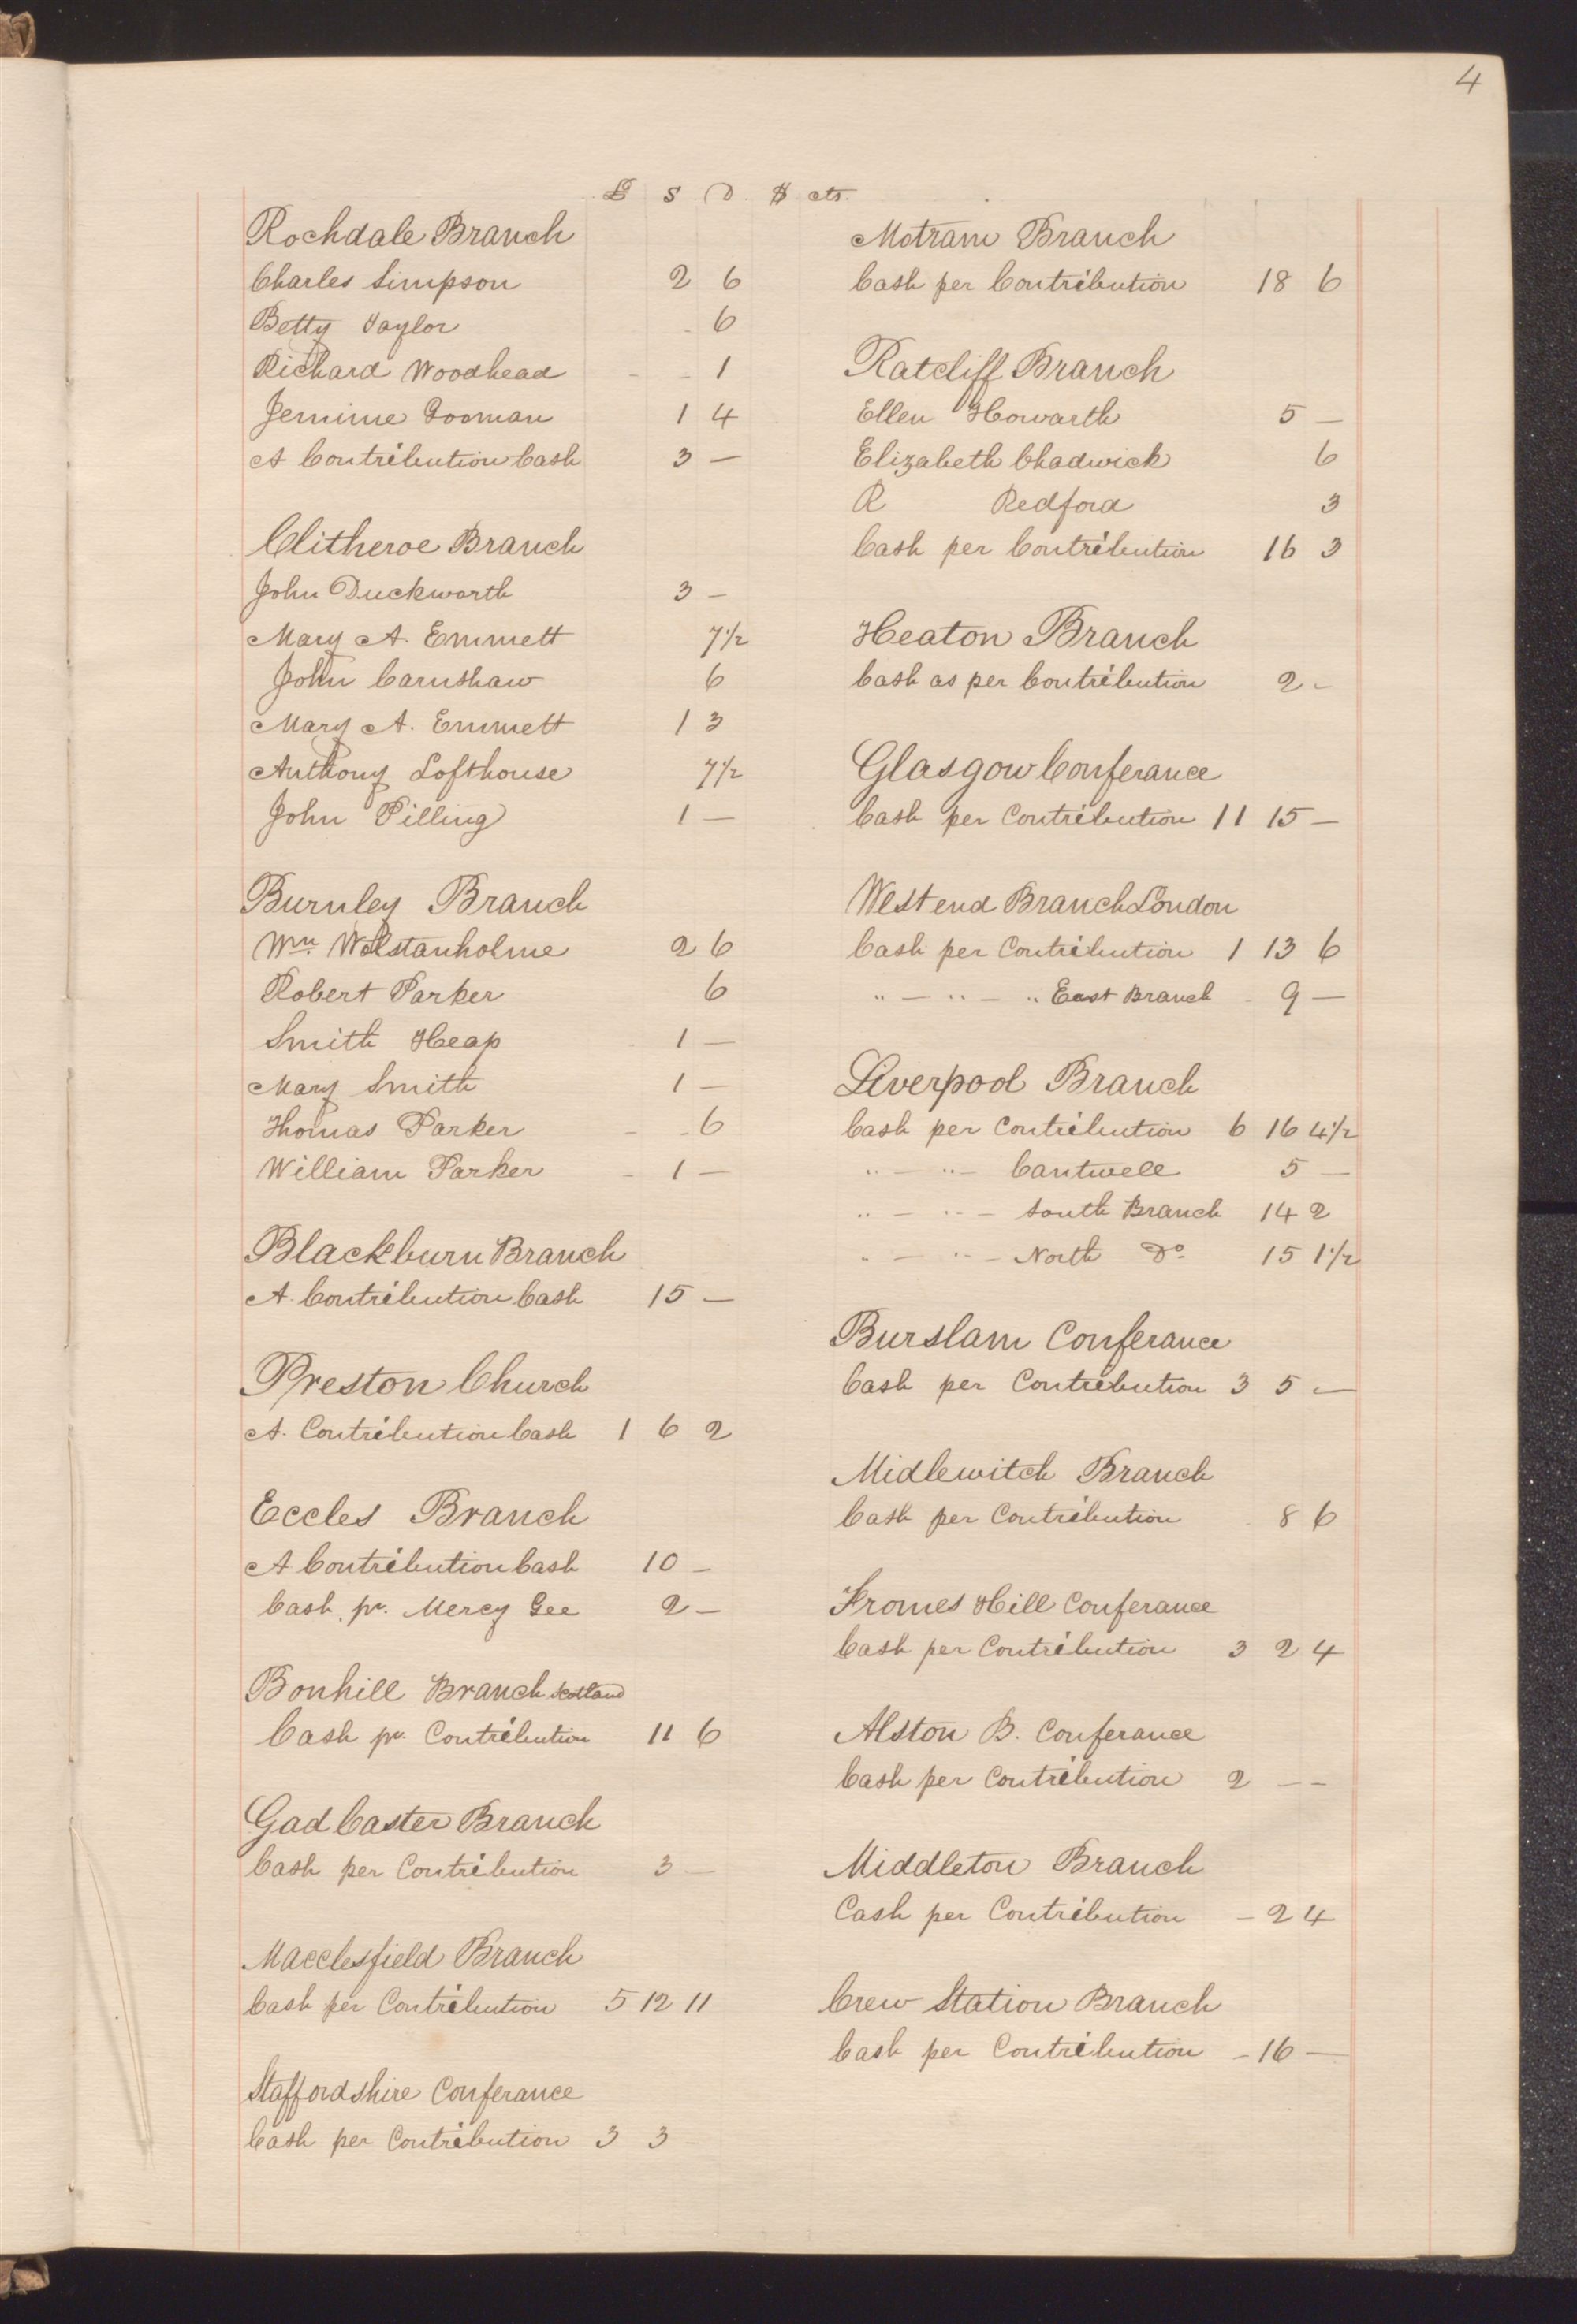 4
£ S D. $ cts.
Rochdale Branch
Charles Simpson 2 6
Betty Taylor - 6
Richard Woodhead - - 1
Jemime 1 4
A Contribution Cash 3 —
Clitheroe Branch
John Duckworth 3 —
Mary A. Emmett 7½
John Carnshaw 6
Mary A. Emmett 1 3
Anthony Lofthouse 7½
John Pilling 1 —
Burnley Branch
Wm. Wolstanholme 2 6
Robert Parker 6
Smith Heap 1 —
Mary Smith 1 —
Thomas Parker - - 6
William Parker - 1 —
Blackburn Branch
A. Contribution Cash 15 —
Preston Church
A. Contribution Cash 1 6 2
Eccles Branch
A Contribution Cash 10 —
Cash pr. Mercy Gee 2 —
Bonhill Branch Scotland
Cash pr. Contribution 11 6
Gad Caster Branch
Cash per Contribution 3 —
Macclesfield Branch
Cash per Contribution 5 12 11
Staffordshire Conferance
Cash per Contribution 3 3 -
Motram Branch
Cash per Contribution 18 6
Ratcliff Branch
Ellen Howarth 5 —
Elizabeth Chadwick 6
R Redford 3
Cash per Contribution 16 3
Heaton Branch
Cash as per Contribution 2 -
Glasgow Conferance
Cash per Contribution 11 15 —
West end Branch London
Cash per Contribution 1 13 6
" — " — " East Branch - 9 —
Liverpool Branch
Cash per Contribution 6 16 4½
" — " — Cantwell 5 —
" — " — South Branch 14 2
" — " — North Do. 15 1½
Burslam Conferance
Cash per Contribution 3 5 —
Midlewitch Branch
Cash per Contribution - 8 6
Fromes Hill Conferance
Cash per Contribution 3 2 4
Alston B. Conferance
Cash per Contribution 2 — —
Middleton Branch
Cash per Contribution - 2 4
Crew Station Branch
Cash per Contribution - 16 —